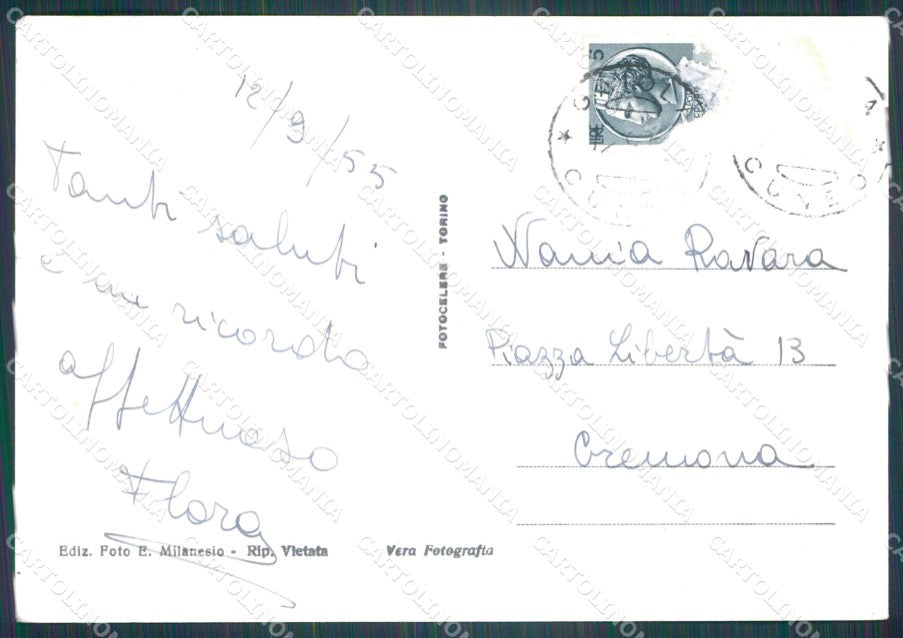 12/9/55
Tanti saluti
e un ricordo
affettuoso
Flora
Ediz. Foto E. Milanesio - Rip. Vietata
Vera Fotografia
FOTOCELERE - TORINO
Wania Ravara
Piazza Libertà 13
Cremona
CARTOLINOMANIA